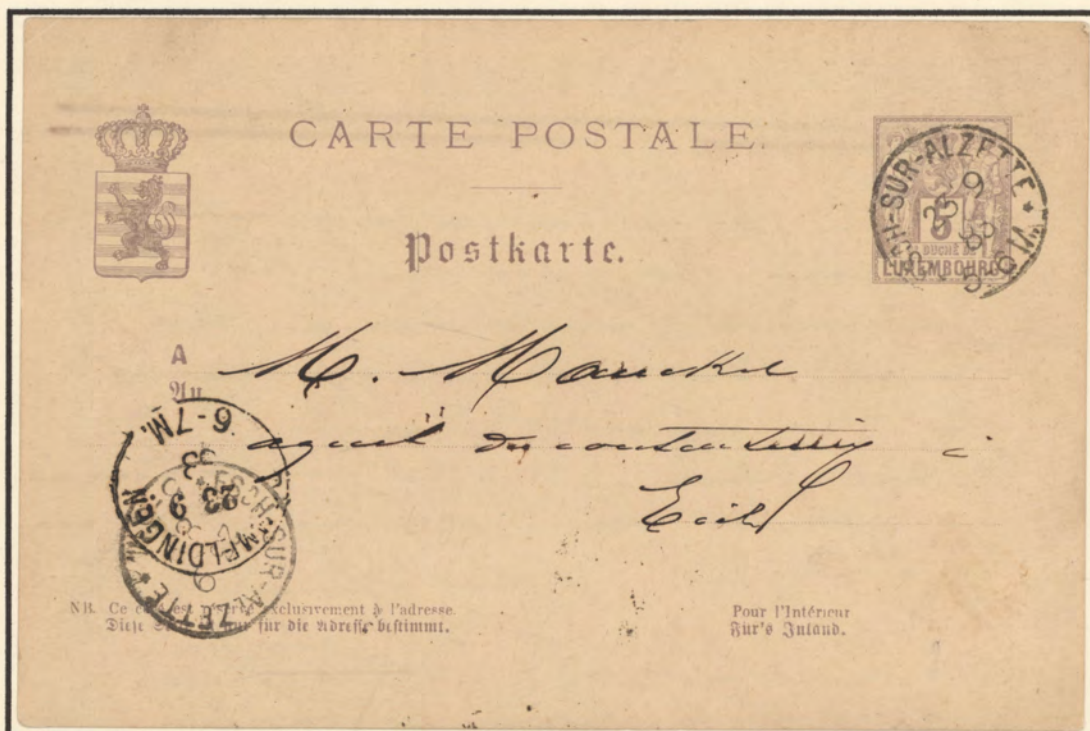 CARTE POSTALE.
Postkarte.
ESCH-SUR-ALZETTE * 23 9 83 5-6 N.
5
DUCHÉ DE
LUXEMBOURG
A
An
M. Manckel
agent du contentieux à
Esch
6-7M.
23 9
MELDINGEN
ESCH-SUR-ALZETTE *
NB. Ce côté est réservé exclusivement à l'adresse.
Diese Seite ist nur für die Adresse bestimmt.
Pour l'Intérieur
Für's Inland.